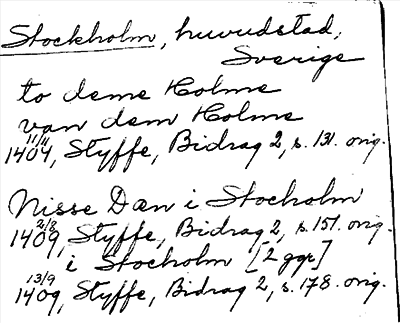 Stockholm, huvudstad,
Sverige
to deme Holme
van dem Holme
11/11
1404, Styffe, Bidrag 2, s. 131. orig.
Nisse Dæn i Stocholm
2/8
1409, Styffe, Bidrag 2, s. 151. orig.
i Stocholm [2 ggr]
13/9
1409, Styffe, Bidrag 2, s. 178. orig.